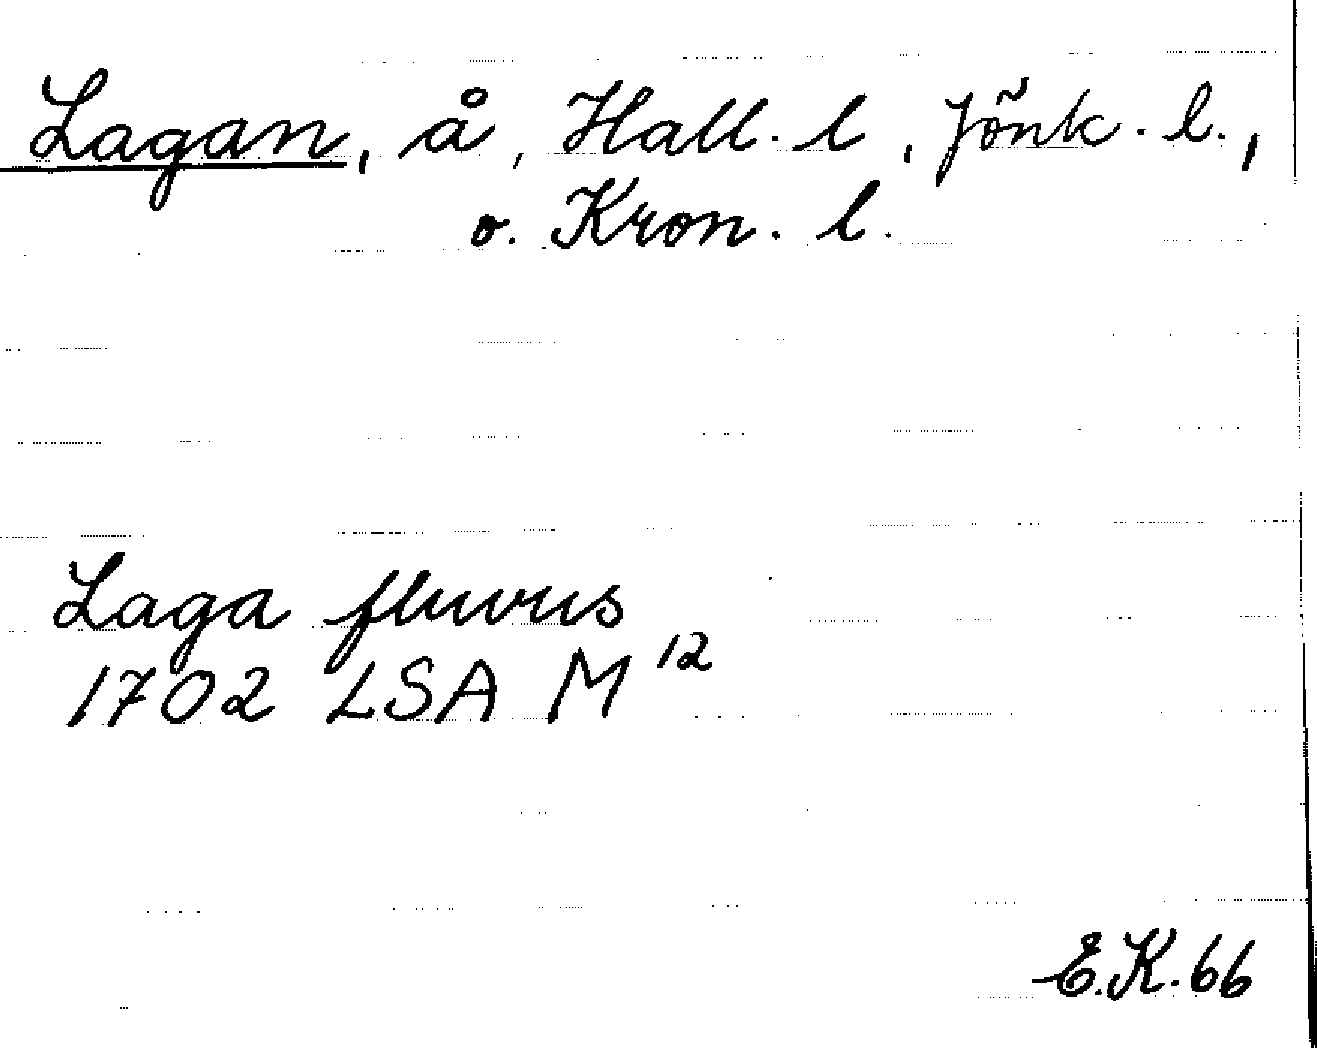 Lagan, å, Hall. l, Jönk. l.,
o. Kron. l.
Laga fluvius
1702 LSA M 12
E.K. 66